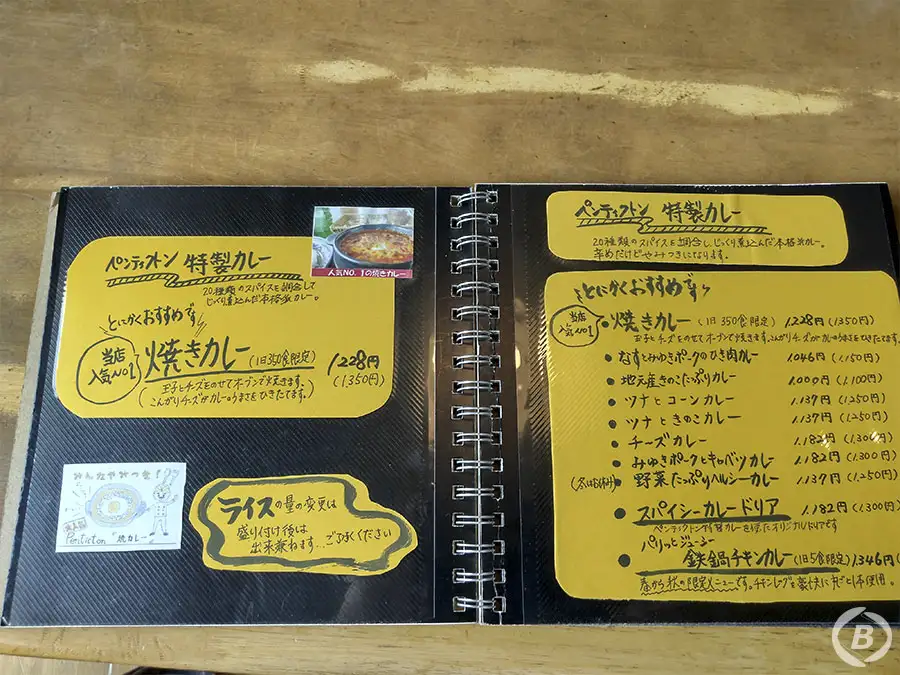 ペンティクトン 特製カレー
20種類のスパイスを調合して
じっくり煮込んだ本格派カレー。
とにかくおすすめです
当店
人気NO1
焼きカレー(1日350食限定) 1.228円
(1.350円)
玉子とチーズをのせてオーブンで焼きます。
こんがりチーズがカレーのうまさをひきたてます。
人気NO.1の焼きカレー
みんなやみつき!
Penticton 焼カレー
ライスの量の変更は
盛り付け後は
出来兼ねます…ご了承ください
ペンティクトン 特製カレー
20種類のスパイスを調合し、じっくり煮込んだ本格派カレー。
辛めだけどやみつきになります。
とにかくおすすめです
当店
人気NO1
焼きカレー(1日350食限定) 1.228円(1350円)
玉子とチーズをのせてオーブンで焼きます。こんがりチーズがカレーのうまさをひきたてます。
なすとみゆきポークのひき肉カレー 1.046円(1.150円)
地元産きのこたっぷりカレー 1.000円(1.100円)
ツナとコーンカレー 1.137円(1.250円)
ツナときのこカレー 1.137円(1.250円)
チーズカレー 1.182円(1.300円)
みゆきポークとキャベツカレー 1.182円(1.300円)
野菜たっぷりヘルシーカレー 1.137円(1.250円)
スパイシーカレードリア 1.182円(1.300円)
ペンティクトン特製カレーを使ったオリジナルドリアです
パリッとジューシー
鉄鍋チキンカレー(1日5食限定)1.346円
春から秋の限定メニューです。チキンレッグを豪快に丸ごと1本使用。
B